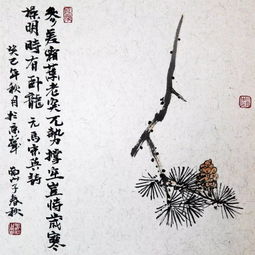 參差霜老突兀勢撐空豈恃歲寒
操明時有臥龍 元馬宋英詩
癸巳年秋月於京華
子春秋